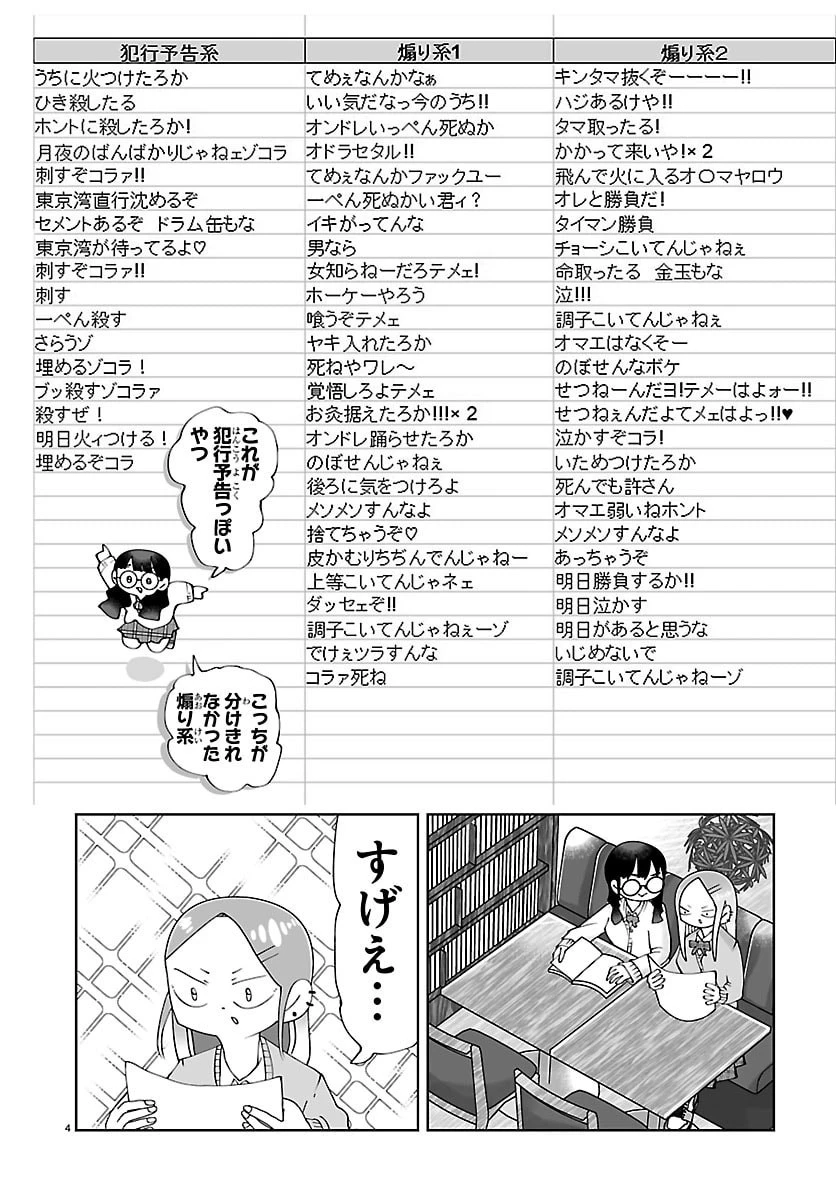 犯行予告系
うちに火つけたろか
ひき殺したる
ホントに殺したろか!
月夜のばんばかりじゃねェゾコラ
刺すぞコラァ!!
東京湾直行沈めるぞ
セメントあるぞ ドラム缶もな
東京湾が待ってるよ♡
刺すぞコラァ!!
刺す
一ぺん殺す
さらうゾ
埋めるゾコラ!
ブッ殺すゾコラァ
殺すぜ!
明日火ィつける!
埋めるぞコラ
煽り系1
てめぇなんかなぁ
いい気だなっ今のうち!!
オンドレいっぺん死ぬか
オドラセタル!!
てめぇなんかファックユー
一ぺん死ぬかい君ィ?
イキがってんな
男なら
女知らねーだろテメェ!
ホーケーやろう
喰うぞテメェ
ヤキ入れたろか
死ねやワレ~
覚悟しろよテメェ
お灸据えたろか!!!×2
オンドレ踊らせたろか
のぼせんじゃねぇ
後ろに気をつけろよ
メソメソすんなよ
捨てちゃうぞ♡
皮かむりちぢんでんじゃねー
上等こいてんじゃネェ
ダッセェぞ!!
調子こいてんじゃねぇーゾ
でけぇツラすんな
コラァ死ね
煽り系2
キンタマ抜くぞーーーー!!
ハジあるけや!!
タマ取ったる!
かかって来いや!×2
飛んで火に入るオ〇マヤロウ
オレと勝負だ!
タイマン勝負
チョーシこいてんじゃねぇ
命取ったる 金玉もな
泣!!!
調子こいてんじゃねぇ
オマエはなくそー
のぼせんなボケ
せつねーんだヨ!テメーはよォー!!
せつねぇんだよてメェはよっ!!♥
泣かすぞコラ!
いためつけたろか
死んでも許さん
オマエ弱いねホント
メソメソすんなよ
あっちゃうぞ
明日勝負するか!!
明日泣かす
明日があると思うな
いじめないで
調子こいてんじゃねーゾ
これが
犯行予告っぽい
はんこうよこく
やつ
こっちが
分けきれ
わ
なかった
煽り系
あおけい
すげえ…
4